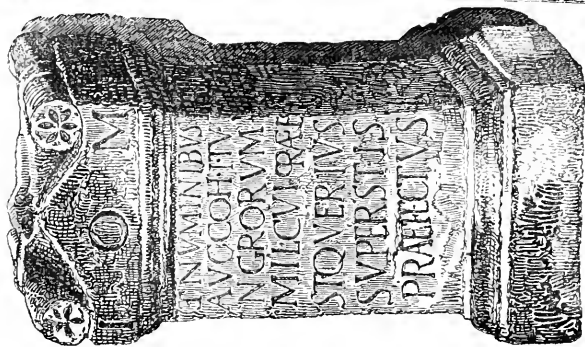 I O M
ET NVMINIBVS
AVG COH I TV
NGRORVM
MIL CVI PRAEE
ST Q VERIVS
SVPERSTIS
PRAEFECTVS